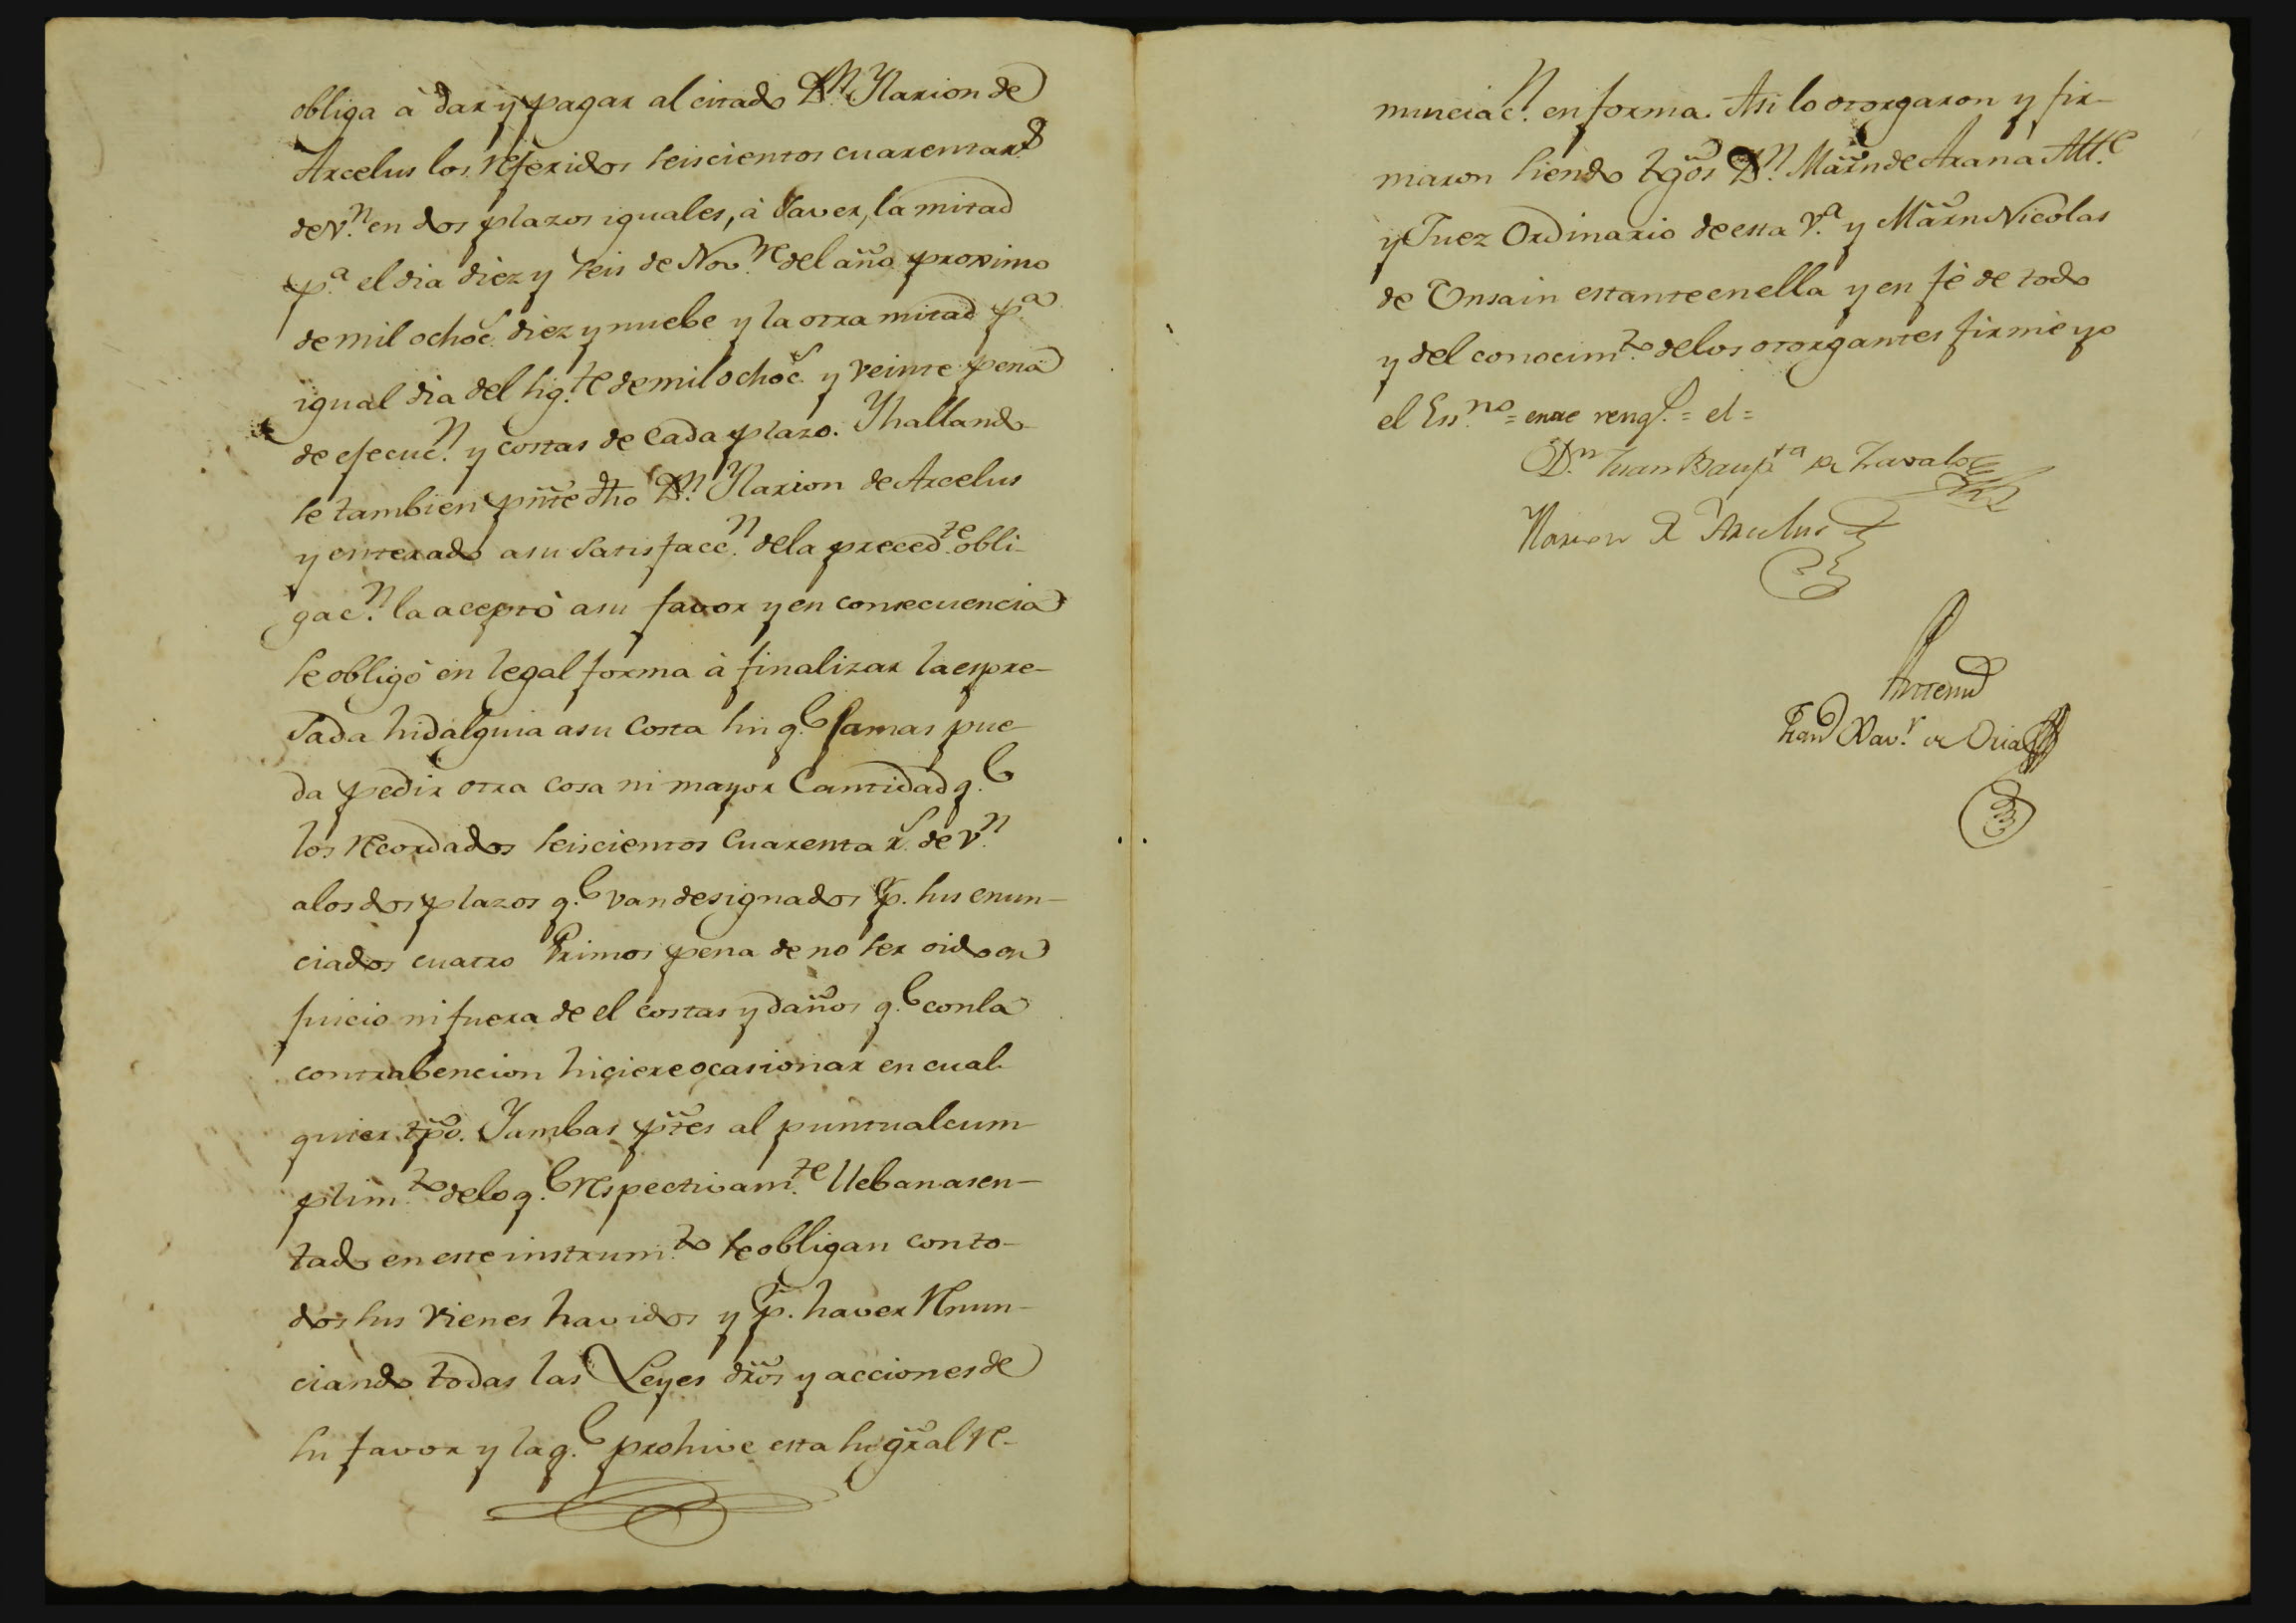 obliga à dar y pagar al citado Dn. Ylarion de
Arcelus los referidos seiscientos cuarenta rs.
de vn. en dos plazos iguales, à saver, la mitad
pa. el dia diez y seis de Nov.re del año proximo
de mil ochocs. diez y nuebe y la otra mitad pa.
igual dia del sig.te de mil ochocs. y veinte pena
de ejecucn. y costas de cada plazo. Y hallando
se tambien pñte dho Dn. Ylarion de Arcelus
y enterado a su satisfaccn. de la preced.te obli-
gacn. la aceptò a su favor y en consecuencia
se obligò en legal forma à finalizar la espre-
sada hidalguia a su costa sin q.e jamas pue-
da pedir otra cosa ni mayor cantidad q.e
los recordados seiscientos cuarenta rs. de vn.
a los dos plazos q.e van designados p. sus enun-
ciados cuatro Primos pena de no ser oido en
juicio ni fuera de el costas y daños q.e con la
contrabencion hiciere ocasionar en cual-
quier tpõ. Y ambas ptẽs al puntual cum-
plim.to de lo q.e respectivam.te lleban asen-
tado en este instrum.to se obligan con to-
dos sus vienes havidos y p. haver renun-
ciando todas las Leyes drõs y acciones de
su favor y la q.e prohive esta su grãl re-
nunciacn. en forma. Asi lo otorgaron y fir-
maron siendo tgõs Dn. Marñ de Arana Alc.e
y Juez Ordinario de esta V.a y Marñ Nicolas
de Unsain estante en ella y en fè de todo
y del conocim.to de los otorgantes firmè yo
el Ess.no = entre rengs. = el =
Dn. Juan Baup.ta de Zavalo
Ylarion de Arcelus
Antemi
Fran.co Xav.r de Oria